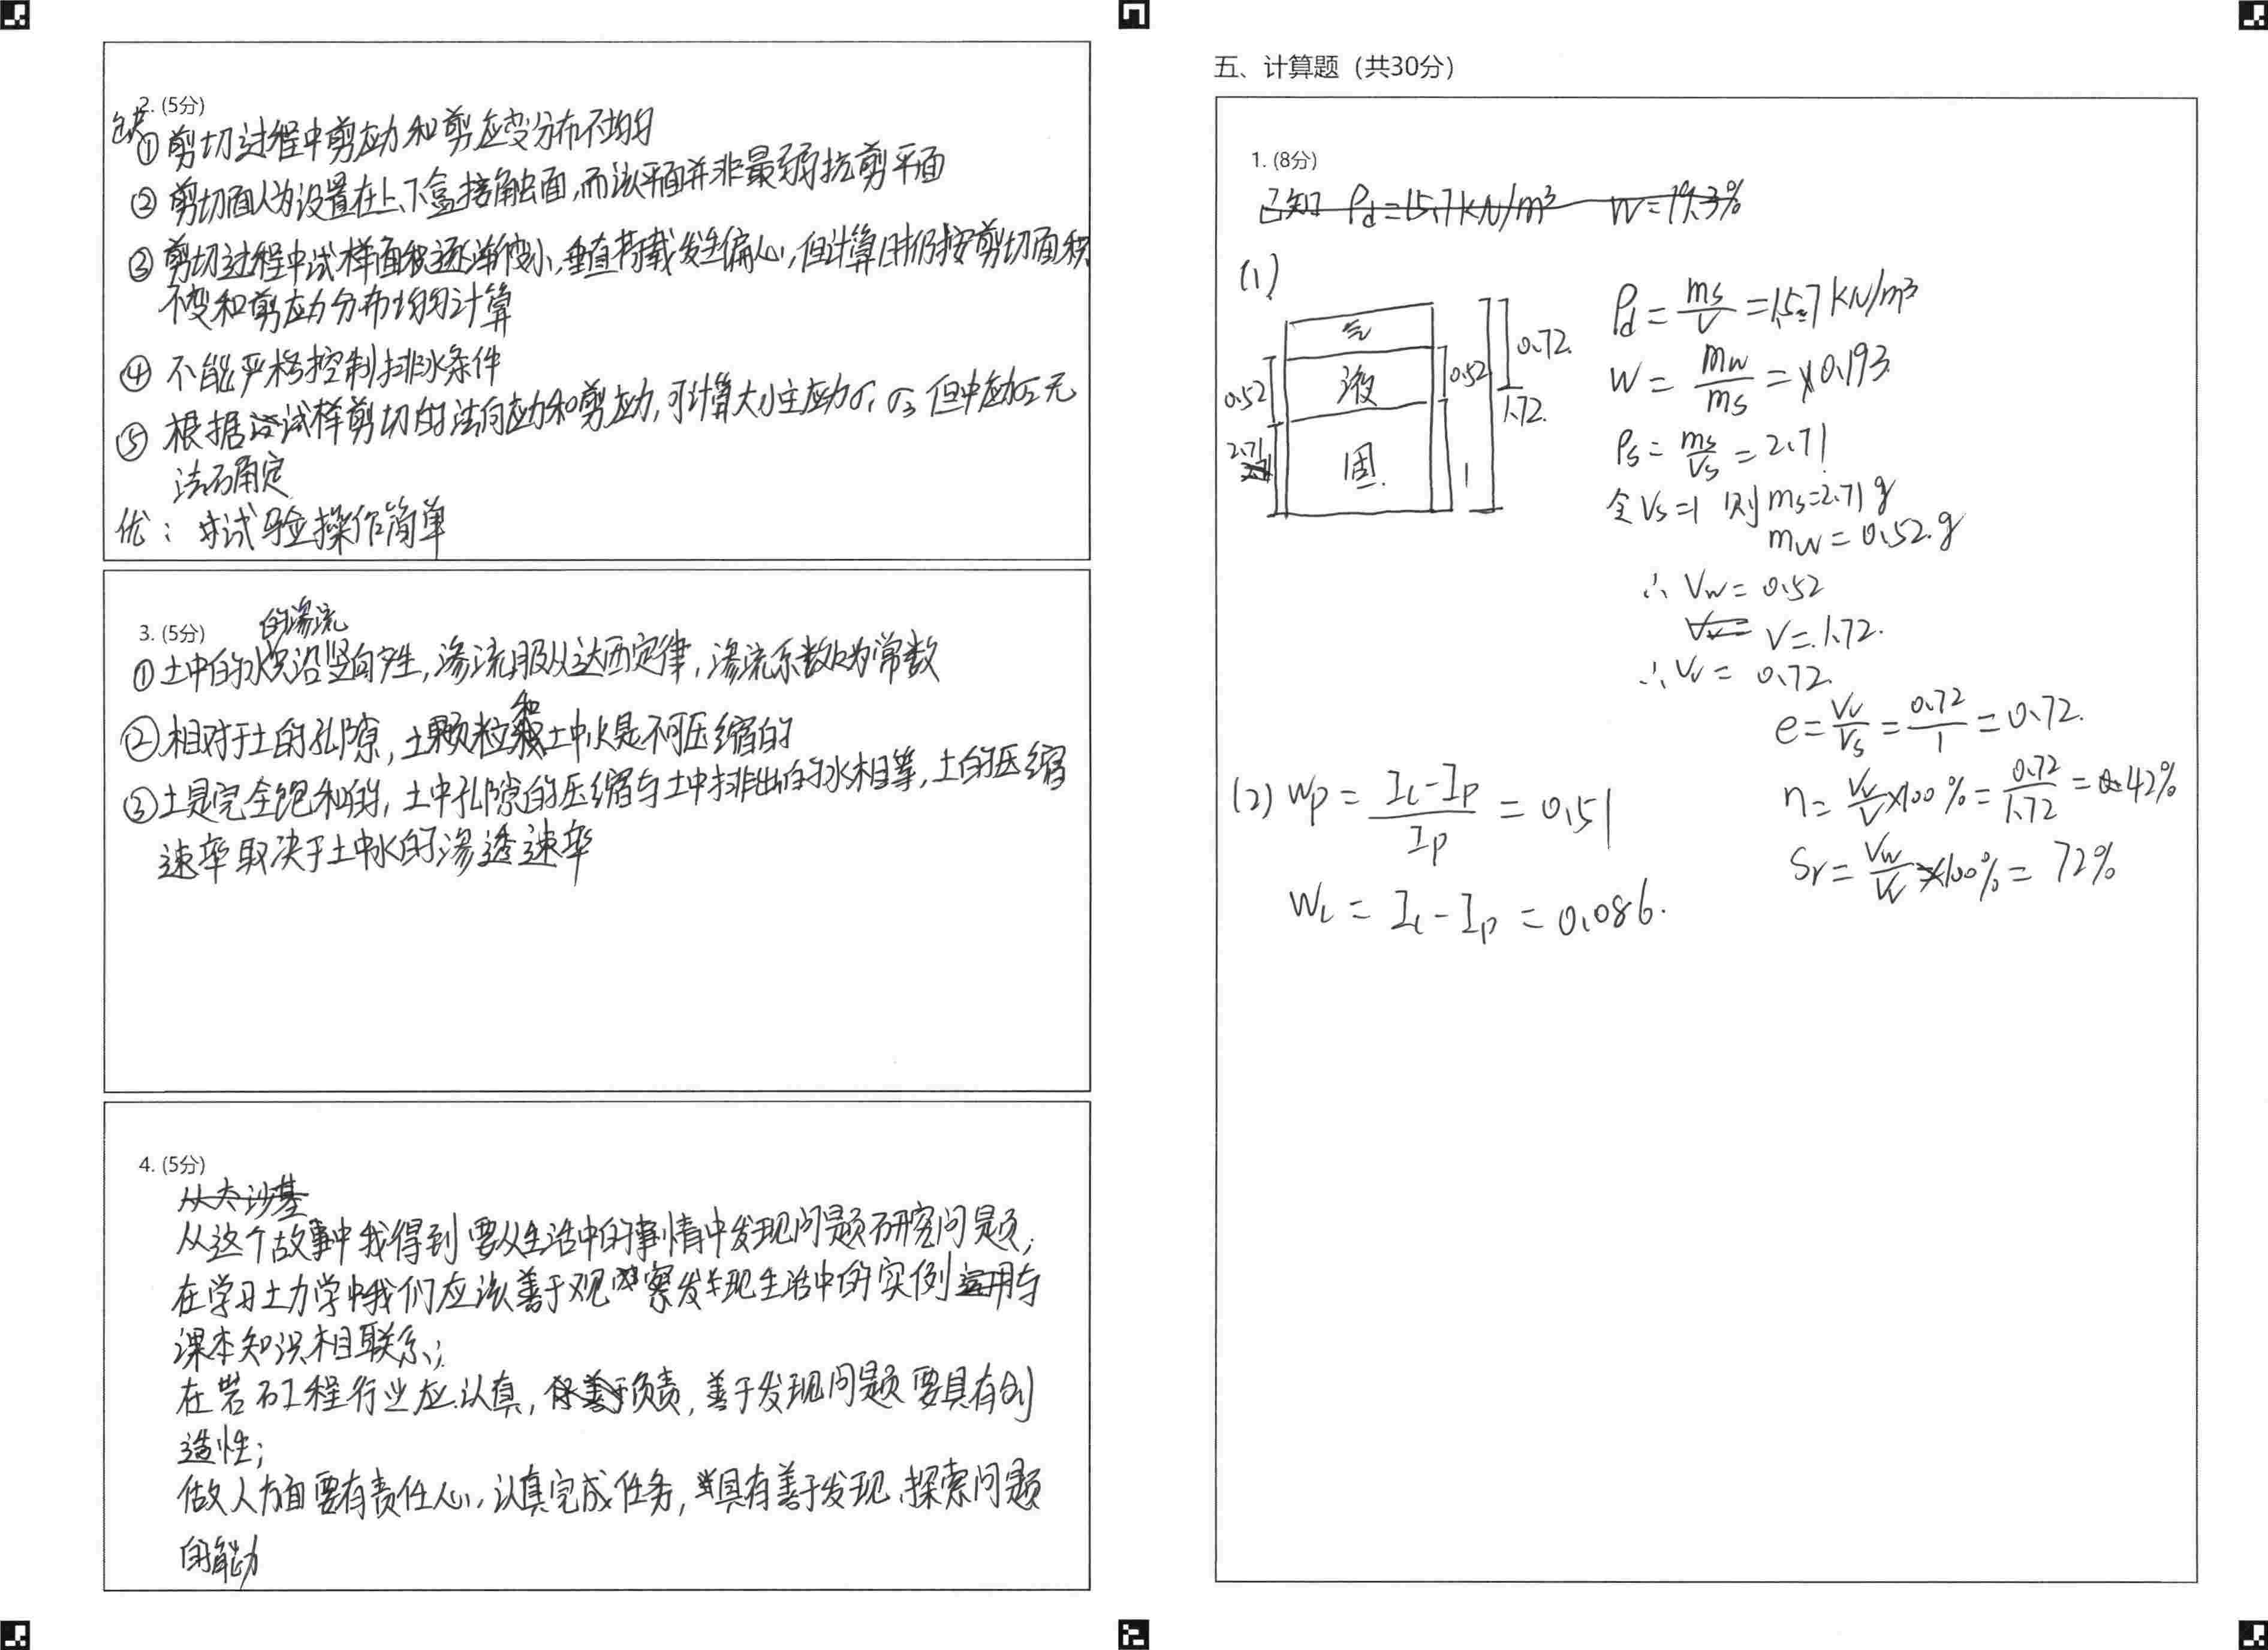 2. (5分)
缺
① 剪切过程中剪应力和剪应变分布不均匀
② 剪切面人为设置在上、下盒接触面,而该平面并非最弱抗剪平面
③ 剪切过程中试样面积逐渐变小,垂直荷载发生偏心,但计算时仍按剪切面积
不变和剪应力分布均匀计算
④ 不能严格控制排水条件
⑤ 根据试样剪切的法向应力和剪应力,可计算大小主应力σ₁ σ₃ 但中应力σ₂无
法确定
优: 试验操作简单
3. (5分)
的渗流
①土中的水只沿竖向产生,渗流服从达西定律,渗流系数k为常数
②相对于土的孔隙,土颗粒和土中水是不可压缩的
③土是完全饱和的,土中孔隙的压缩与土中排出的水相等,土的压缩
速率取决于土中水的渗透速率
4. (5分)
从太沙基
从这个故事中我得到要从生活中的事情中发现问题研究问题;
在学习土力学中我们应该善于观察发现生活中的实例运用与
课本知识相联系;
在岩石工程行业应认真,负责,善于发现问题要具有创
造性;
做人方面要有责任心,认真完成任务,具有善于发现、探索问题
的能力
五、计算题(共30分)
1. (8分)
已知 ρd=15.7kN/m³ W=19.3%
(1)
气
液
固.
0.52
2.71
0.52
1
0.72.
1.72.
ρd = ms/V = 15.7 kN/m³
W = mw/ms = 0.193.
ρs = ms/Vs = 2.71
令Vs=1 则ms=2.71g
mw = 0.52.g
∴ Vw = 0.52
V = 1.72.
∴ Vv = 0.72.
e = Vv/Vs = 0.72/1 = 0.72.
n = Vv/V ×100% = 0.72/1.72 = 42%
Sr = Vw/Vv ×100% = 72%
(2) Wp = (IL-Ip)/Ip = 0.51
WL = IL-Ip = 0.086.